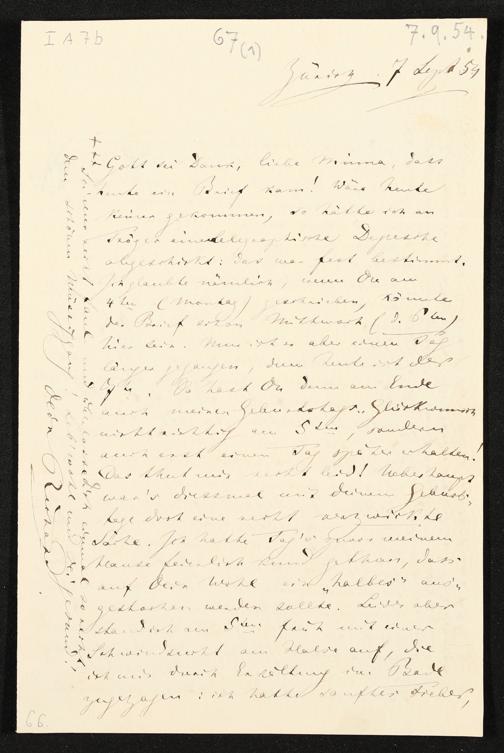 I A 7b
67
(1)
7.9.54.
Zürich. 7 Sept 54
Gott sei Dank, liebe Minna, dass
heute ein Brief kam! Wäre heute
keiner gekommen, so hätte ich an
Tröger eine telegraphische Depesche
abgeschickt: das war fest bestimmt.
Ich glaubte nämlich, wenn Du am
4ten (Montag) geschrieben, könnte
der Brief schon Mittwoch (d. 6ten)
hier sein. Nun ist er aber einen Tag
länger gegangen, denn heute ist der
7te. So hast Du denn am Ende
auch meinen Geburtstags-Glückwunsch
nicht richtig am 5ten, sondern
auch erst einen Tag später erhalten!
Das thut mir recht leid! Ueberhaupt
war's diessmal mit Deinem Geburts-
tage dort eine recht verzwickte
Sache. Ich hatte Tag's zuvor meinem
Hause feierlich kund gethan, dass
auf Dein Wohl ein "halbes" aus-
gestochen werden sollte. Leider aber
stand ich am 5ten früh mit einer
Schwindsucht am Halse auf, die
ich mir durch Erkältung im Bade
zugezogen: ich hatte sanftes Fieber,
dem schönen Müssiggang! Lebwohl und sei gesund!
Dein Richard
66.